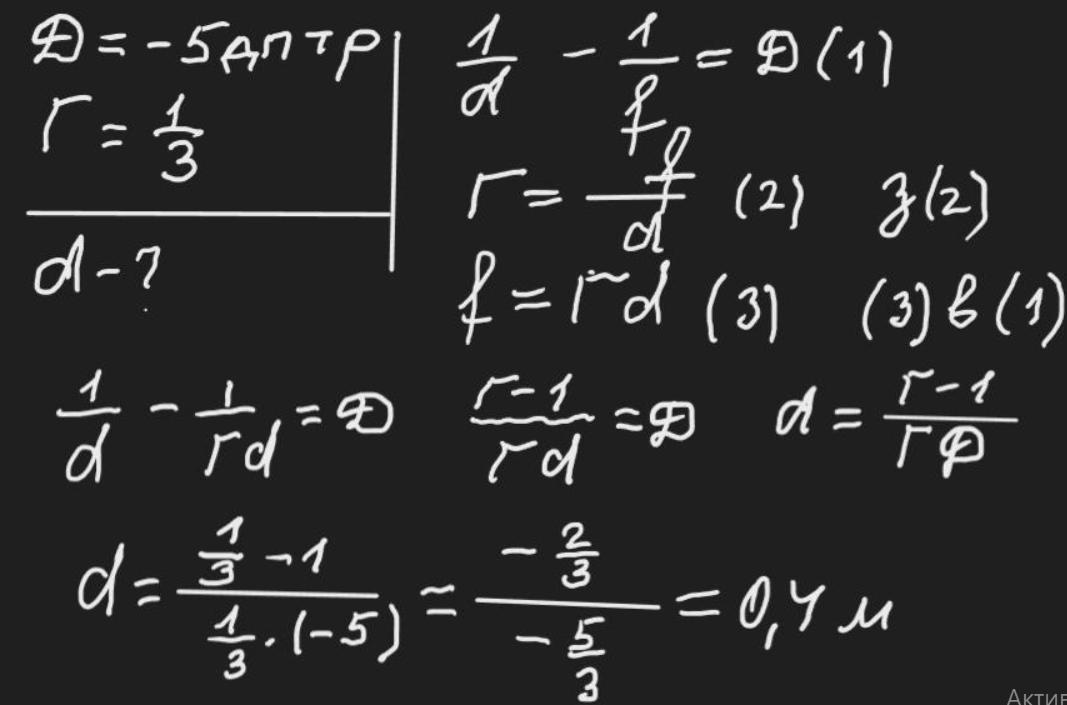 D = -5 дптр
Г = 1/3
d - ?
1/d - 1/f = D (1)
Г = f/d (2) З (2)
f = Гd (3) (3) в (1)
1/d - 1/Гd = D Г-1/Гd = D d = Г-1/ГD
d = (1/3 - 1)/(1/3 · (-5)) = (-2/3)/(-5/3) = 0,4 м
Актив